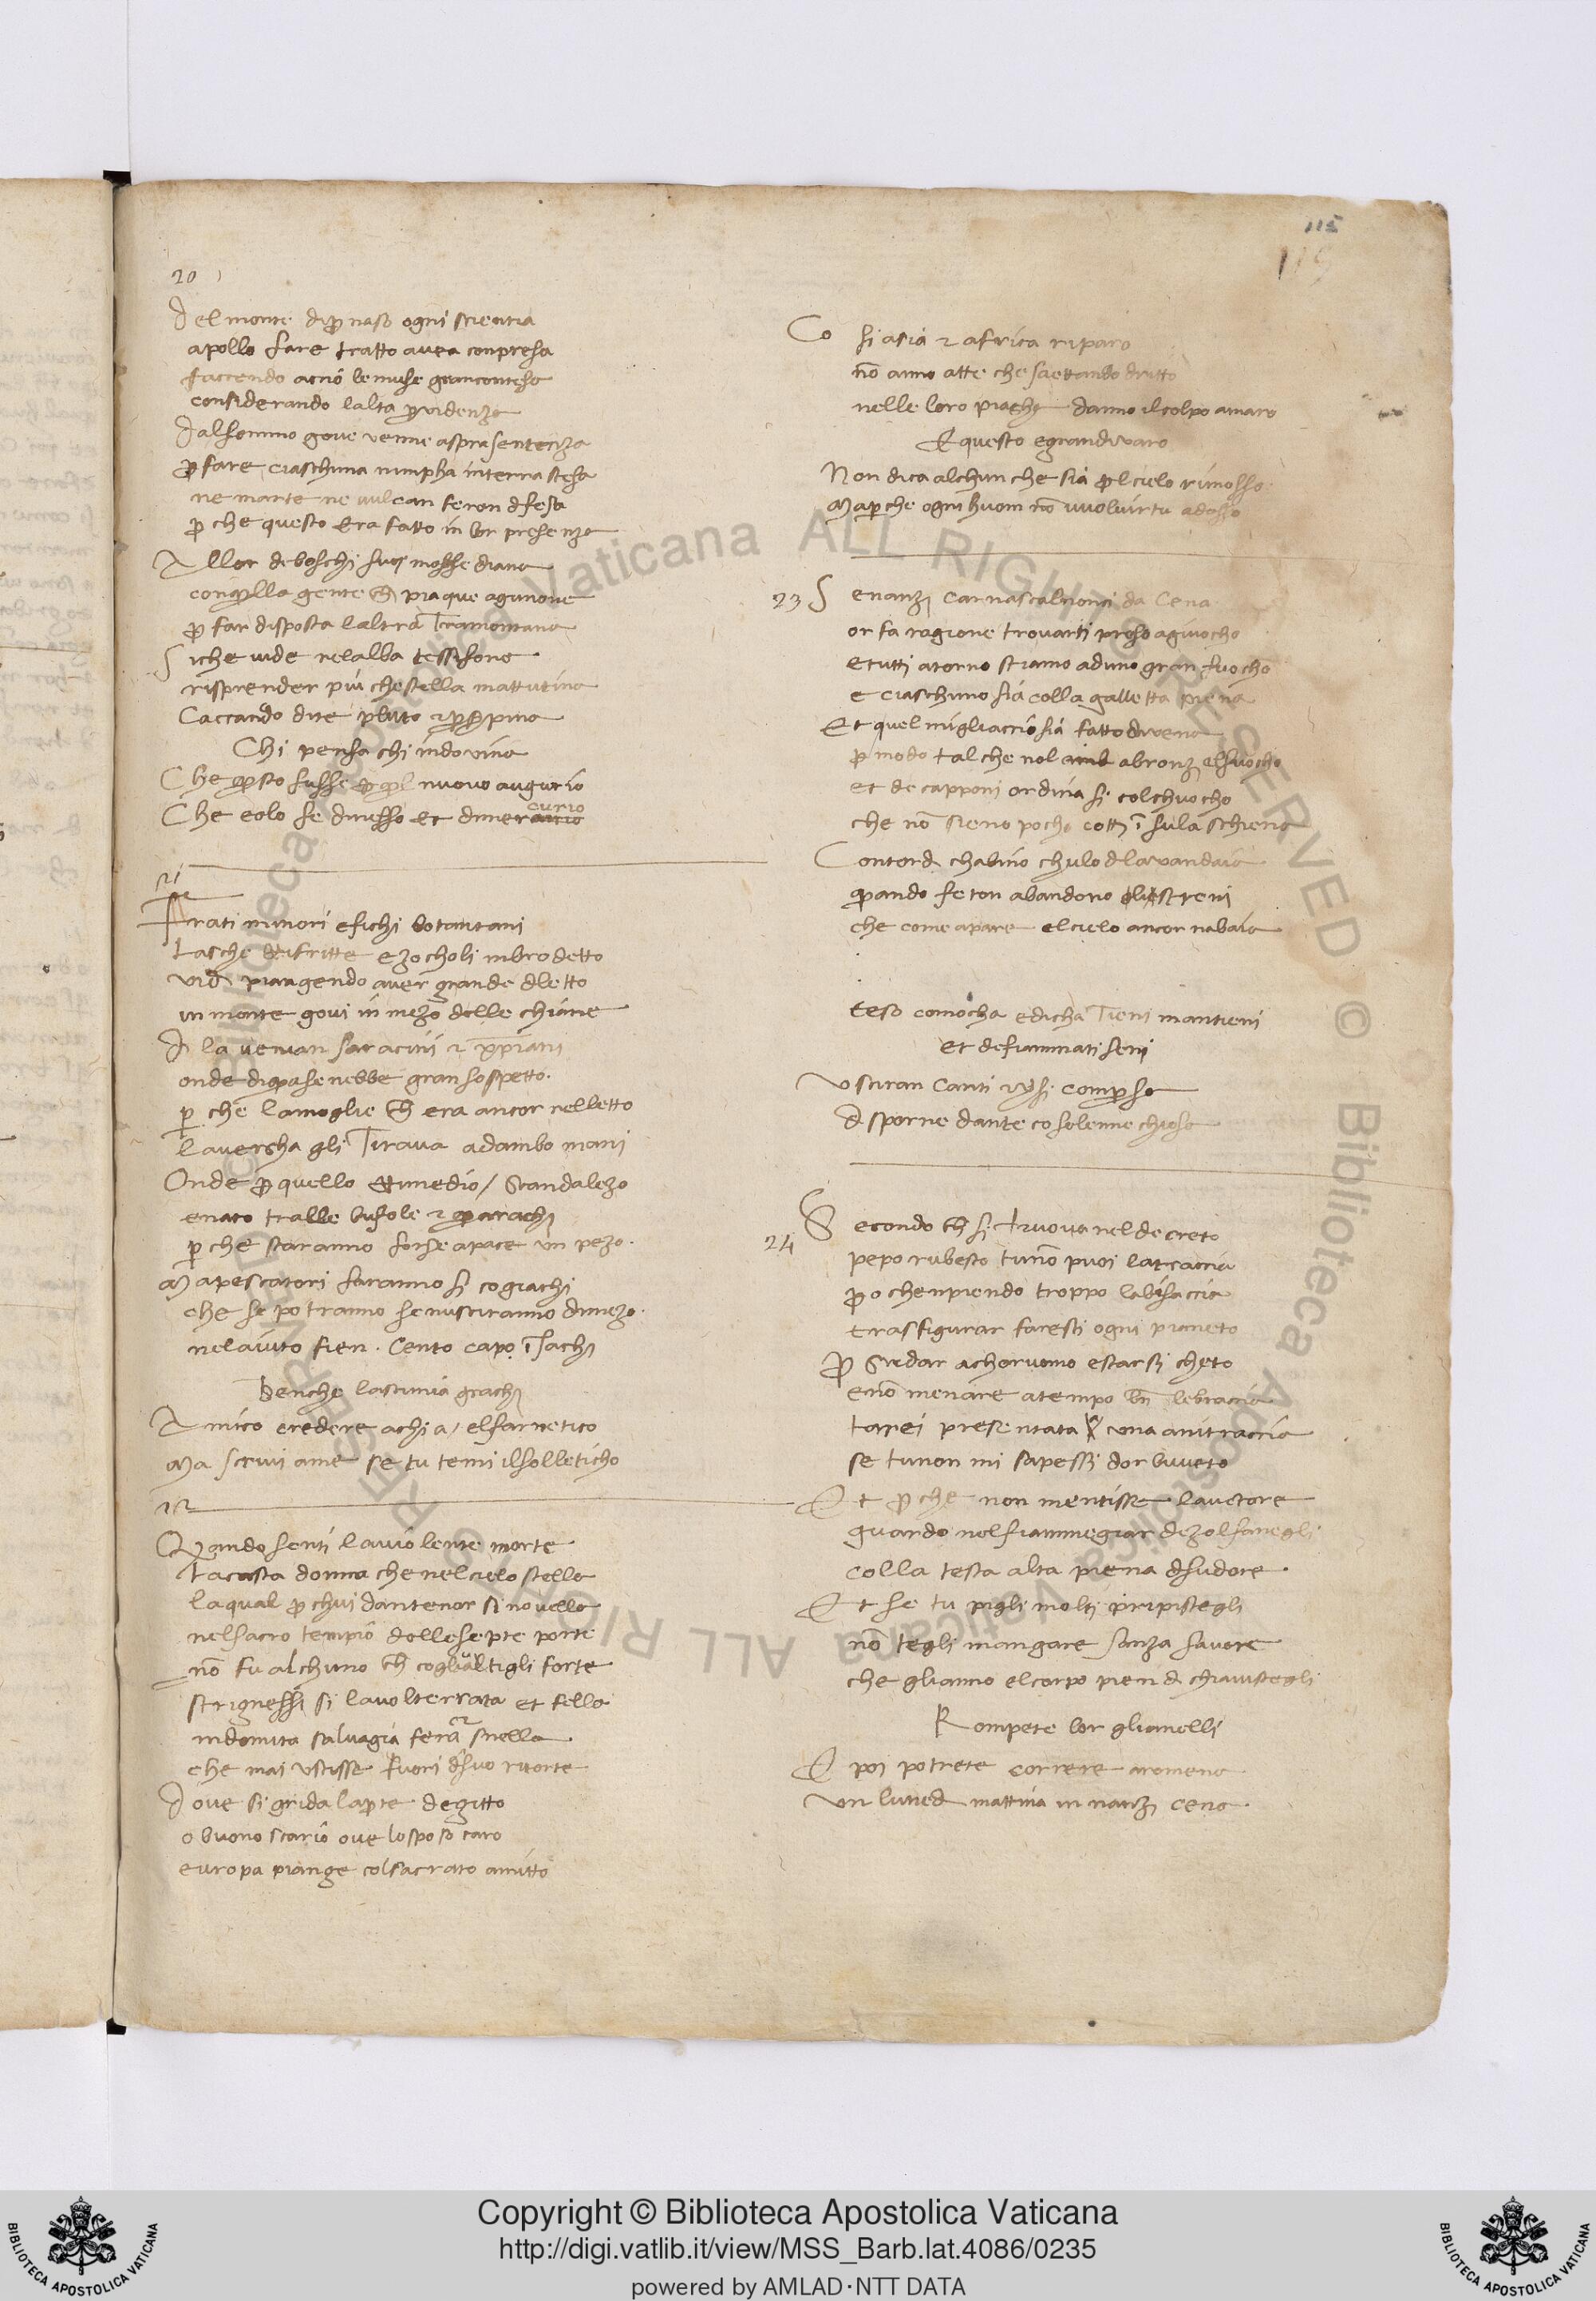 115
119
20
Del monte di p̱naso ogni scientia
apollo fare tratto avea conpresa
faccendo acciò le muse gran contesa
considerando lalta p̱videnza
Dal sommo gove venne aspra sentenza
p̱ fare ciaschuna nimpha in terra stesa
ne marte ne vulcan feron dfesa
p̱ che questo era fatto in lor presenza
Allor de boschi suoi mosse diana
con q̱lla gente ch̄
p̱ far disposta laltra Tramontana
Siche vide nelalba tessifone
risprender più che stella mattutina
Caccando dite pluto
Chi pensa chi indovina
Che q̱sto fusse p̱ q̱l nuovo augurio
Che eolo fe di nesso et di mercurio
21
Frati minori e fichi
Lasche
vid piangendo aver grande dletto
in monte govi in mezo delle chiane
Di la venian saracini
onde gran sospetto
per che la moglie ch̄ era ancor nelletto
laversha gli Tirava adambo mani
Onde p̱ quello scandalezo
enato tralle bussole
per che staranno forse apace un pezo
Ma pescatori saranno si
che se potranno senusciranno di mezo
nelaiuto fien Cento capo
Benche lascimia grachi
Amico credere achi a / el farnetico
Ma scrivi ame se tu temi il solleticho
22
Quando senti la violente morte
la casta donna che nel cielo stella
la qual p̱ chui dantenor si novella
nel sacro tempio delle septe porte
nō fu alchuno ch̄
strignessi si la volterrata et fella
indomita salvagia fera snella
che mai uscisse fuori dsuo ritorte
Dove si grida la p̱te degitto
o buono scario ove lo sposo caro
europa piange col sacrato amitto
Co si asia & africa riparo
nō anno atte che saettando dritto
nelle loro piaghe danno il colpo amaro
Equesto e grandivaro
Non dica alchun che sia p̱l cielo rimosso
Ma per che ogni huom nō vuol virtu adosso
23 Se nanzi carnascal nonci da Cena
or fa ragione trovarti preso agiuocho
etutti atorno stiamo aduno gran fuocho
e ciaschuno sia colla galletta piena
Et quel migliaccio sia fatto
p̱ modo tal che nol abronzi el fuocho
et de capponi ordina si col chuocho
che nō sieno pocho cotti sula schiena
Contord chalino chulo dlavandaia
quando feton abandono
che come apare el cielo ancor nabaia
teso edicha Tieni mantieni
et
Usciran Canti
d sporne dante co solenne chiosa
24 Secondo ch̄ si truova nel decreto
pepo rubesto tu nō puoi latraccia
p̱o chenpiendo troppo labisaccia
trasfigurar faresti ogni pianeto
p̱ sudar estarsi cheto
enō menare atempo bn̄ lebraccia
tarei presentata una anitraccia
se tu non mi sapessi dorbiveto
Et p̱ che non mentisse lauctore
guardo nel fiammegiar de zolfanegli
colla testa alta piena dsudore
Et se tu pigli molti pipistegli
nō tegli mangare sanza savore
che glianno el corpo pien d chiavistegli
Rompete lor glianelli
E poi potrete correre aromena
Un luned mattina in nanzi cena
Copyright © Biblioteca Apostolica Vaticana
http://digi.vatlib.it/view/MSS_Barb.lat.4086/0235
powered by AMLAD·NTT DATA
BIBLIOTECA APOSTOLICA VATICANA
BIBLIOTECA APOSTOLICA VATICANA
© Biblioteca Apostolica Vaticana ALL RIGHTS RESERVED © Biblioteca Apostolica Vaticana ALL RIGHTS RESERVED